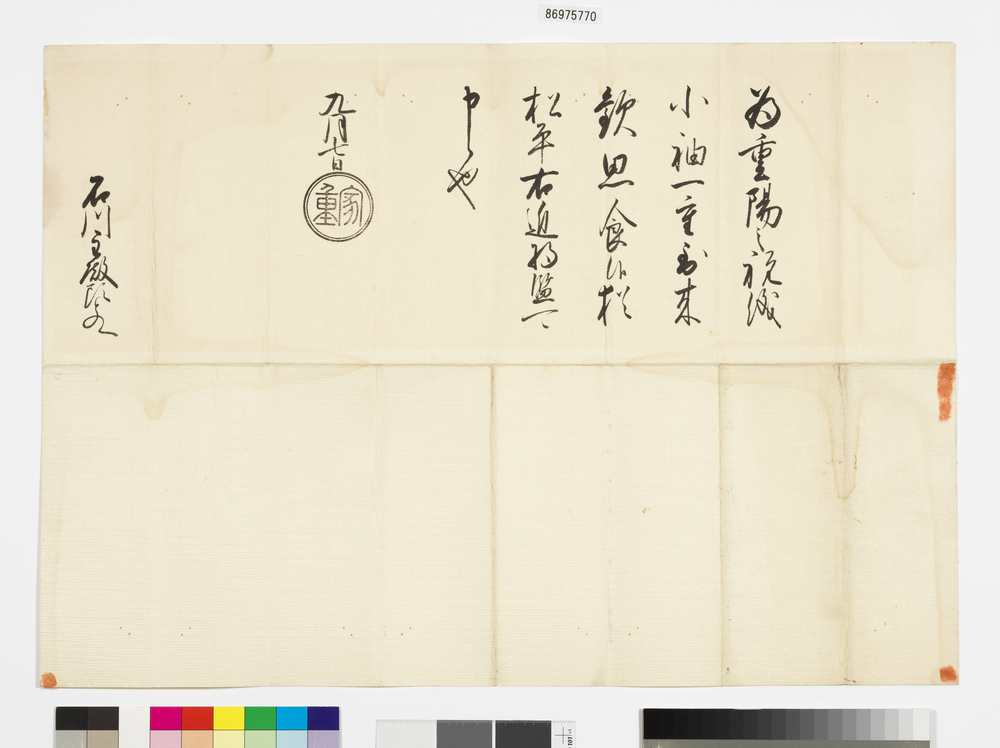 86975770
為重陽之祝儀
小袖一重到来
歓思食候猶
松平右近将監可
申候也
九月七日
家重
石川主殿頭とのへ